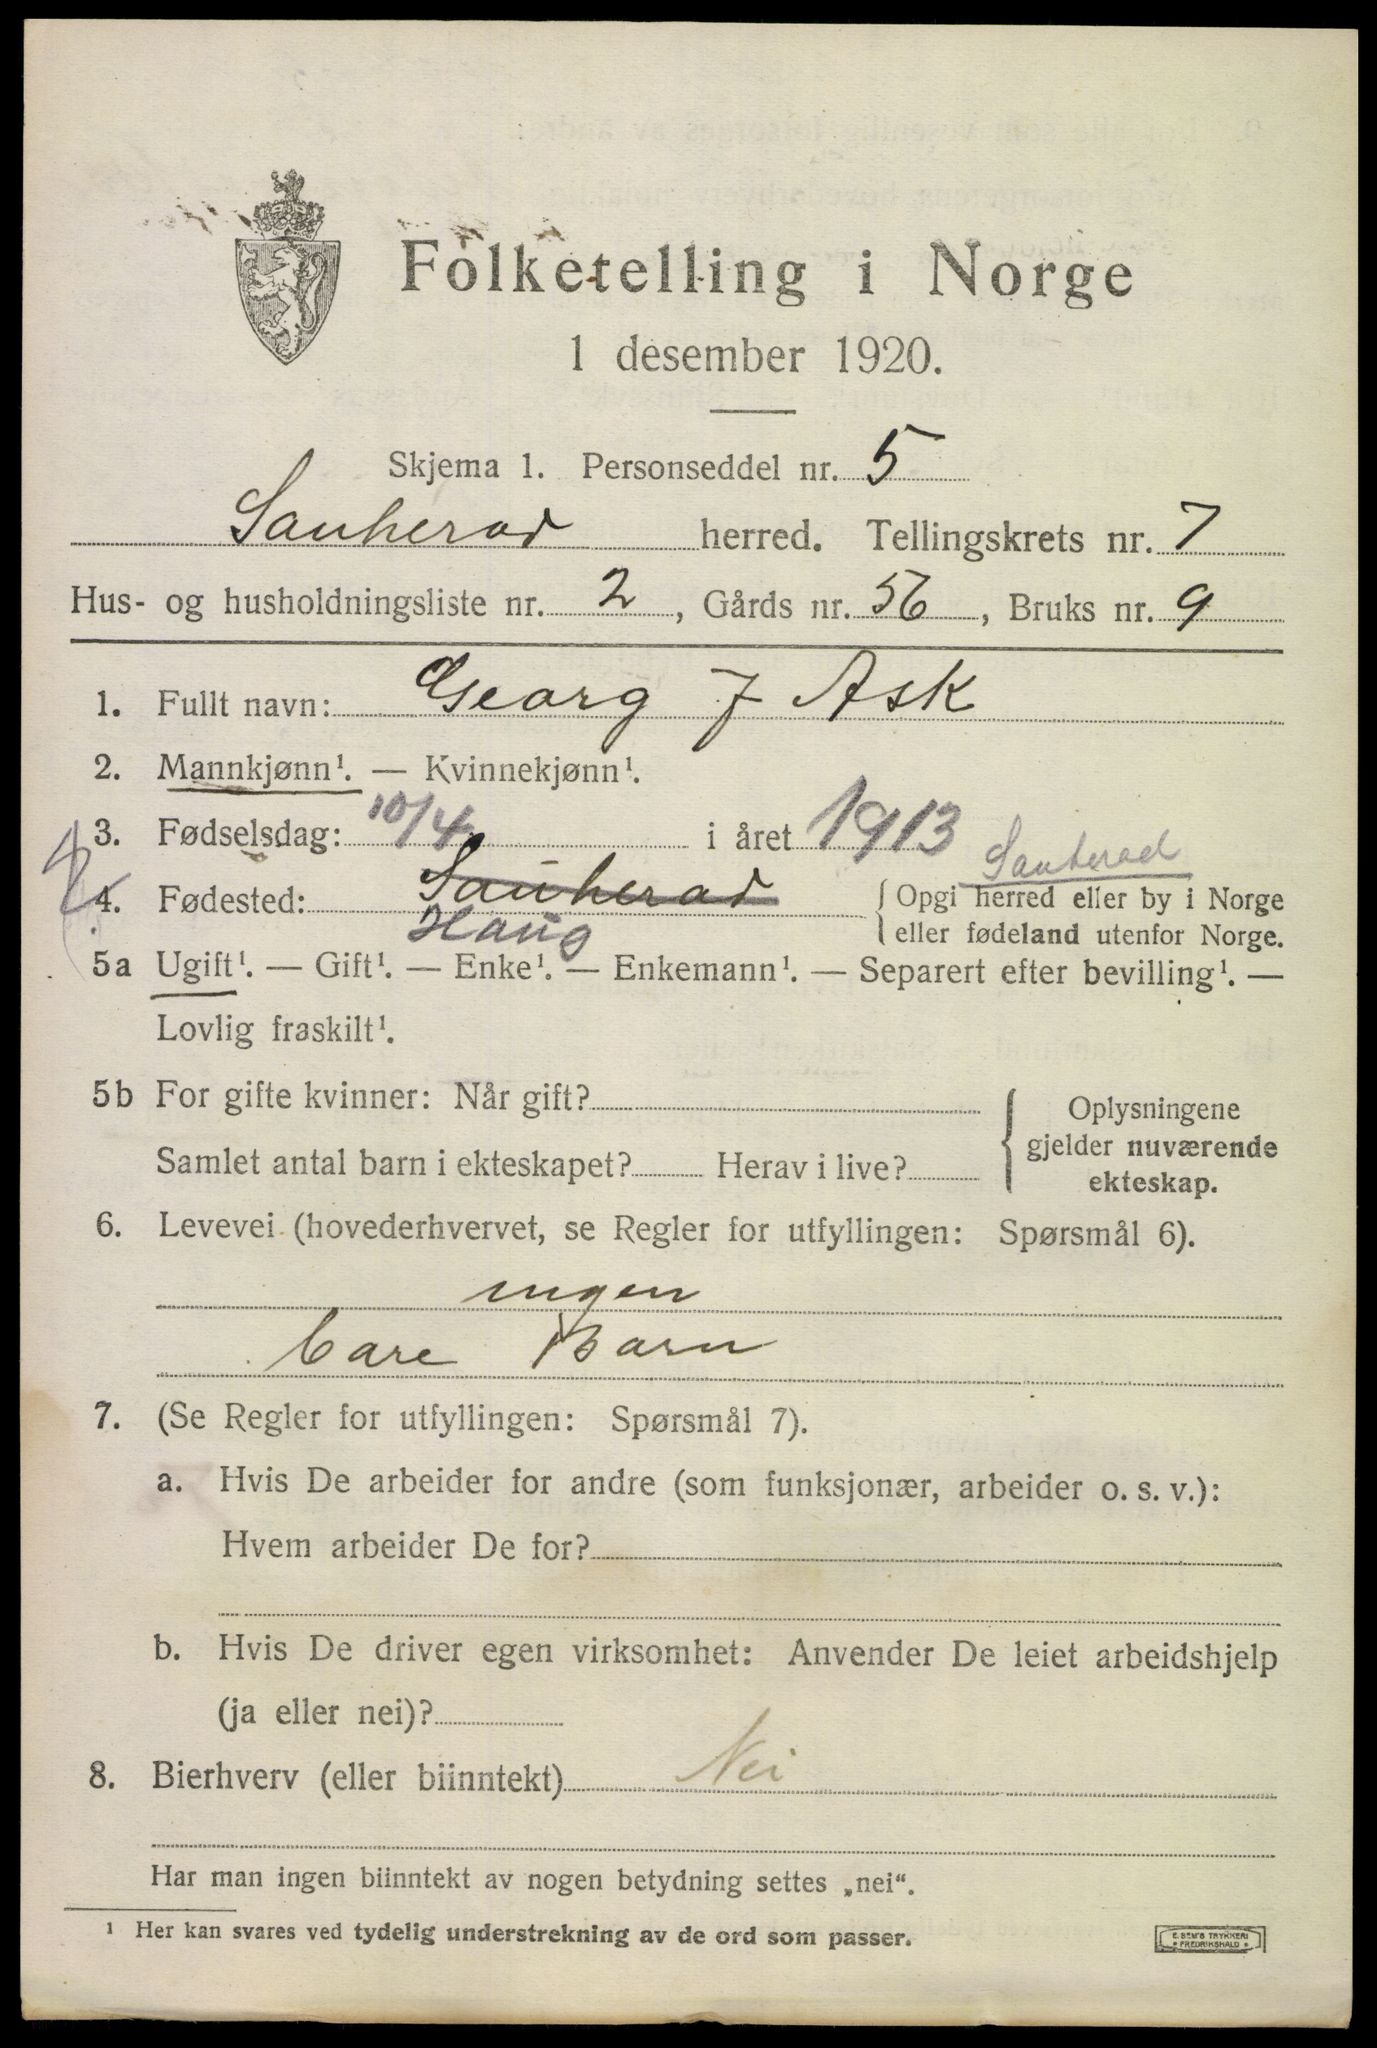 Folketelling i Norge
1 desember 1920.
Skjema 1. Personseddel nr. 5
Sauherad herred. Tellingskrets nr. 7
Hus- og husholdningsliste nr. 2, Gårds nr. 56, Bruks nr. 9
1. Fullt navn: Georg J Ask
2. Mannkjønn¹. — Kvinnekjønn¹.
3. Fødselsdag: 10/4 i året 1913
Sauherad
4. Fødested: Sauherad { Opgi herred eller by i Norge
eller fødeland utenfor Norge.
Haug
5a Ugift¹. — Gift¹. — Enke¹. — Enkemann¹. — Separert efter bevilling¹. —
Lovlig fraskilt¹.
5b For gifte kvinner: Når gift?
Samlet antal barn i ekteskapet? Herav i live?
{ Oplysningene
gjelder nuværende
ekteskap.
6. Levevei (hovederhvervet, se Regler for utfyllingen: Spørsmål 6).
ingen
bare Barn
7. (Se Regler for utfyllingen: Spørsmål 7).
a. Hvis De arbeider for andre (som funksjonær, arbeider o. s. v.):
Hvem arbeider De for?
b. Hvis De driver egen virksomhet: Anvender De leiet arbeidshjelp
(ja eller nei)?
8. Bierhverv (eller biinntekt) Nei
Har man ingen biinntekt av nogen betydning settes „nei“.
¹ Her kan svares ved tydelig understrekning av de ord som passer.
E. SEM'S TRYKKERI
FREDRIKSHALD